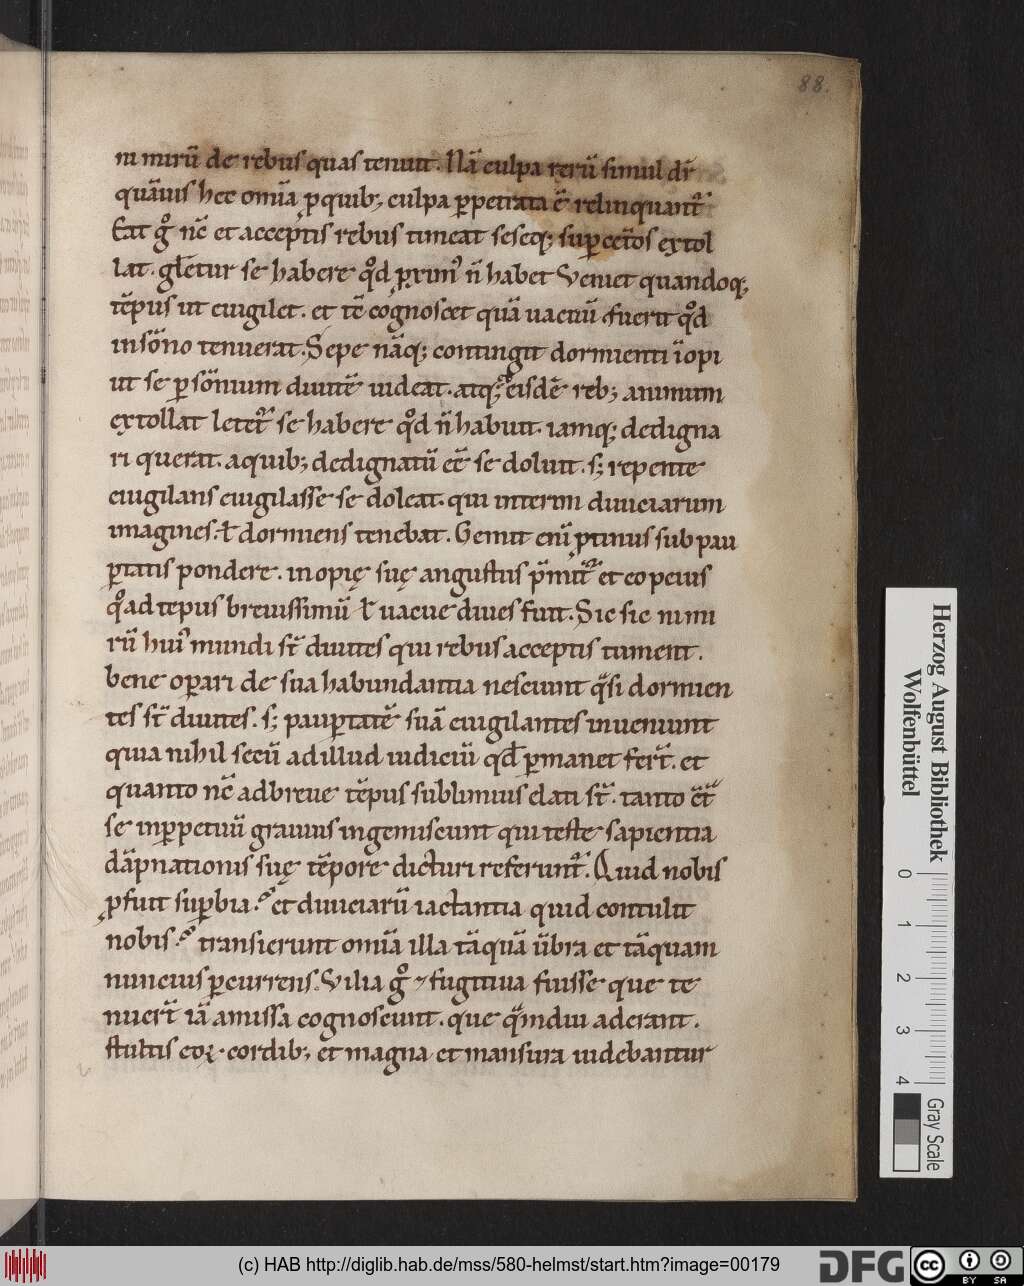 88.
ni mirū de rebus quas tenuit. Nā culpa rerū simul dr̄
quāuis hec om̄ia ꝑ quib; culpa ꝑpetrata ē relinquant᷑
Eat gͦ nc̄ et acceptis rebus timeat seseq; suꝑ cet̄os extol
lat. glet̄ur se habere qͦd ꝓxim᷒ n̄ habet Veniet quandoq;
tēpus ut euigilet. et tc̄ cognoscet quā uacuū fuerit qͦd
in sōno tenuerat. Sepe nāq; contingit dormienti īopi
ut se ꝑ sōnium diuitē uideat. atq; eisdē reb; animum
extollat letet᷑ se habere qͦd n̄ habuit. iamq; dedigna
ri querat. a quib; dedignatū ec̄ se doluit. s; repente
euigilans euigilasse se doleat. qui interim diuiciarum
imagines. ł dormiens tenebat. Gemit eni᷒ ꝓtinus sub pau
ꝑtatis pondere. inopię suę angustiis p̄mit᷑ et eo peius
qͦ ad tepus breuissimū ł uacue diues fuit. Sic sic nimi
rū hui᷒ mundi st̄ diuites qui rebus acceptis tument.
bene oꝑari de sua habundantia nesciunt qͣsi dormien
tes st̄ diuites. s; pauꝑtatē suā euigilantes inueniunt
quia nihil secū ad illud iudiciū qd̄ ꝑmanet fert̄. et
quanto nc̄ ad breue tēpus sublimius elati st̄. tanto ct̄
se in ꝑpetuū grauius ingemiscunt qui teste sapientia
dāpnationis suę tēpore dicturi referunt᷑. Quid nobis
ꝓfuit suꝑbia? et diuiciarū iactantia quid contulit
nobis? transierunt om̄ia illa tāquā ūbra et tāquam
nuncius ꝑcurrens. Vilia gͦ fugitiua fuisse que te
nuert̄ iā amissa cognoscunt. que qͣmdiu aderant.
stultis eoꝝ. cordib; et magna et mansura uidebantur
Herzog August Bibliothek
Wolfenbüttel
0
1
2
3
4
Gray Scale
(c) HAB http://diglib.hab.de/mss/580-helmst/start.htm?image=00179
DFG
cc
BY SA